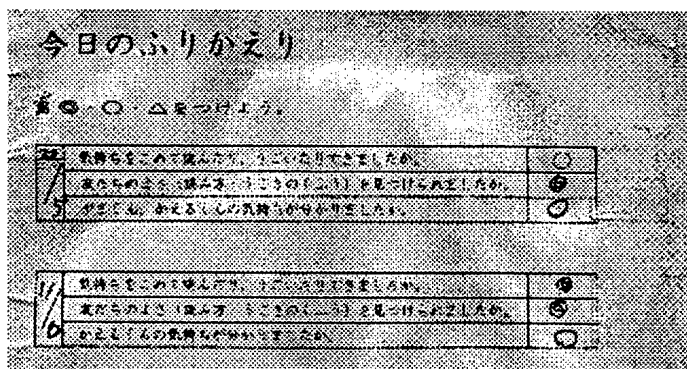 今日のふりかえり
◎・○・△をつけよう。
気持ちをこめて読んだり、うごいたりできましたか。 ○
友だちのよさ(読み方・うごきのくふう)を見つけられましたか。 ◎
5 がまくん、かえるくんの気持ちが分かりましたか。 ○
11 気持ちをこめて読んだり、うごいたりできましたか。 ◎
友だちのよさ(読み方・うごきのくふう)を見つけられましたか。 ◎
かえるくんの気持ちが分かりましたか。 ○